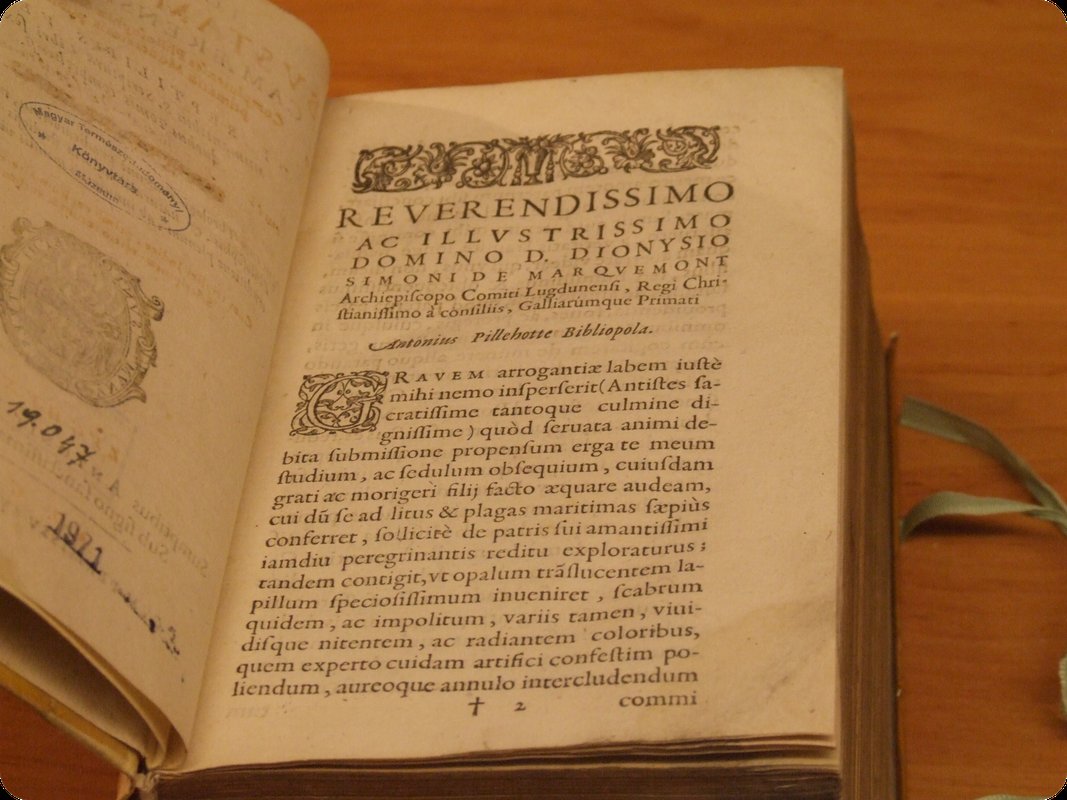 Magyar Természettudományi
Könyvtára
19.047
1971
REVERENDISSIMO
AC ILLVSTRISSIMO
DOMINO D. DIONYSIO
SIMONI DE MARQVEMONT
Archiepiſcopo Comiti Lugdunenſi, Regi Chri-
ſtianiſſimo à conſiliis, Galliarúmque Primati
Antonius Pillehotte Bibliopola.
GRAVEM arrogantiæ labem iuſtè
mihi nemo inſperſerit (Antiſtes ſa-
cratiſſime tantoque culmine di-
gniſſime) quòd ſeruata animi de-
bita ſubmiſſione propenſum erga te meum
ſtudium, ac ſedulum obſequium, cuiuſdam
grati ac morigeri filij facto æquare audeam,
cui dũ ſe ad litus & plagas maritimas ſæpiùs
conferret, ſollicitè de patris ſui amantiſſimi
iamdiu peregrinantis reditu exploraturus;
tandem contigit, vt opalum trãſlucentem la-
pillum ſpecioſiſſimum inueniret, ſcabrum
quidem, ac impolitum, variis tamen, viui-
diſque nitentem, ac radiantem coloribus,
quem experto cuidam artifici confeſtim po-
liendum, aureoque annulo intercludendum
† 2 commi